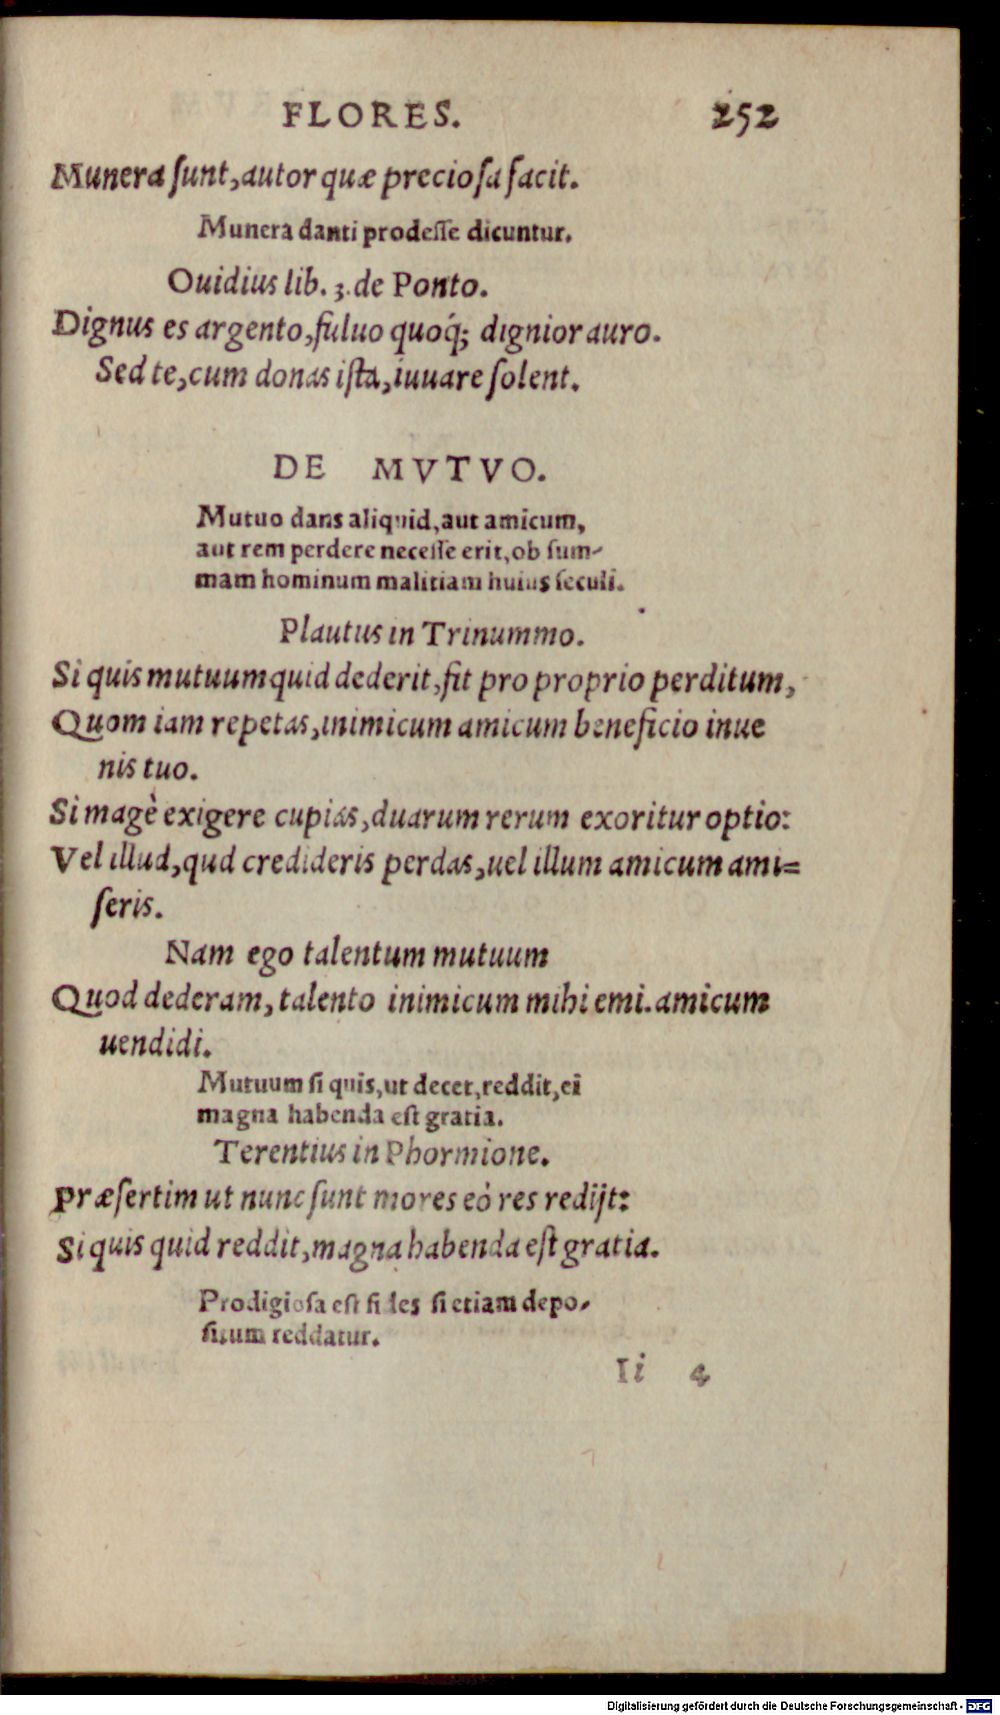 FLORES. 252
Munera sunt, autor quæ preciosa facit.
Munera danti prodesse dicuntur.
Ouidius lib. 3. de Ponto.
Dignus es argento, fuluo quoq́; dignior auro.
Sed te, cum donas ista, iuuare solent.
DE MVTVO.
Mutuo dans aliquid, aut amicum,
aut rem perdere necesse erit, ob sum-
mam hominum malitiam huius seculi.
Plautus in Trinummo.
Si quis mutuum quid dederit, fit pro proprio perditum,
Quom iam repetas, inimicum amicum beneficio inue
nis tuo.
Si magè exigere cupias, duarum rerum exoritur optio:
Vel illud, qud credideris perdas, uel illum amicum ami=
seris.
Nam ego talentum mutuum
Quod dederam, talento inimicum mihi emi. amicum
uendidi.
Mutuum si quis, ut decet, reddit, ei
magna habenda est gratia.
Terentius in Phormione.
Præsertim ut nunc sunt mores eò res redijt:
Si quis quid reddit, magna habenda est gratia.
Prodigiosa est fides si etiam depo-
situm reddatur.
Ii 4
Digitalisierung gefördert durch die Deutsche Forschungsgemeinschaft - DFG